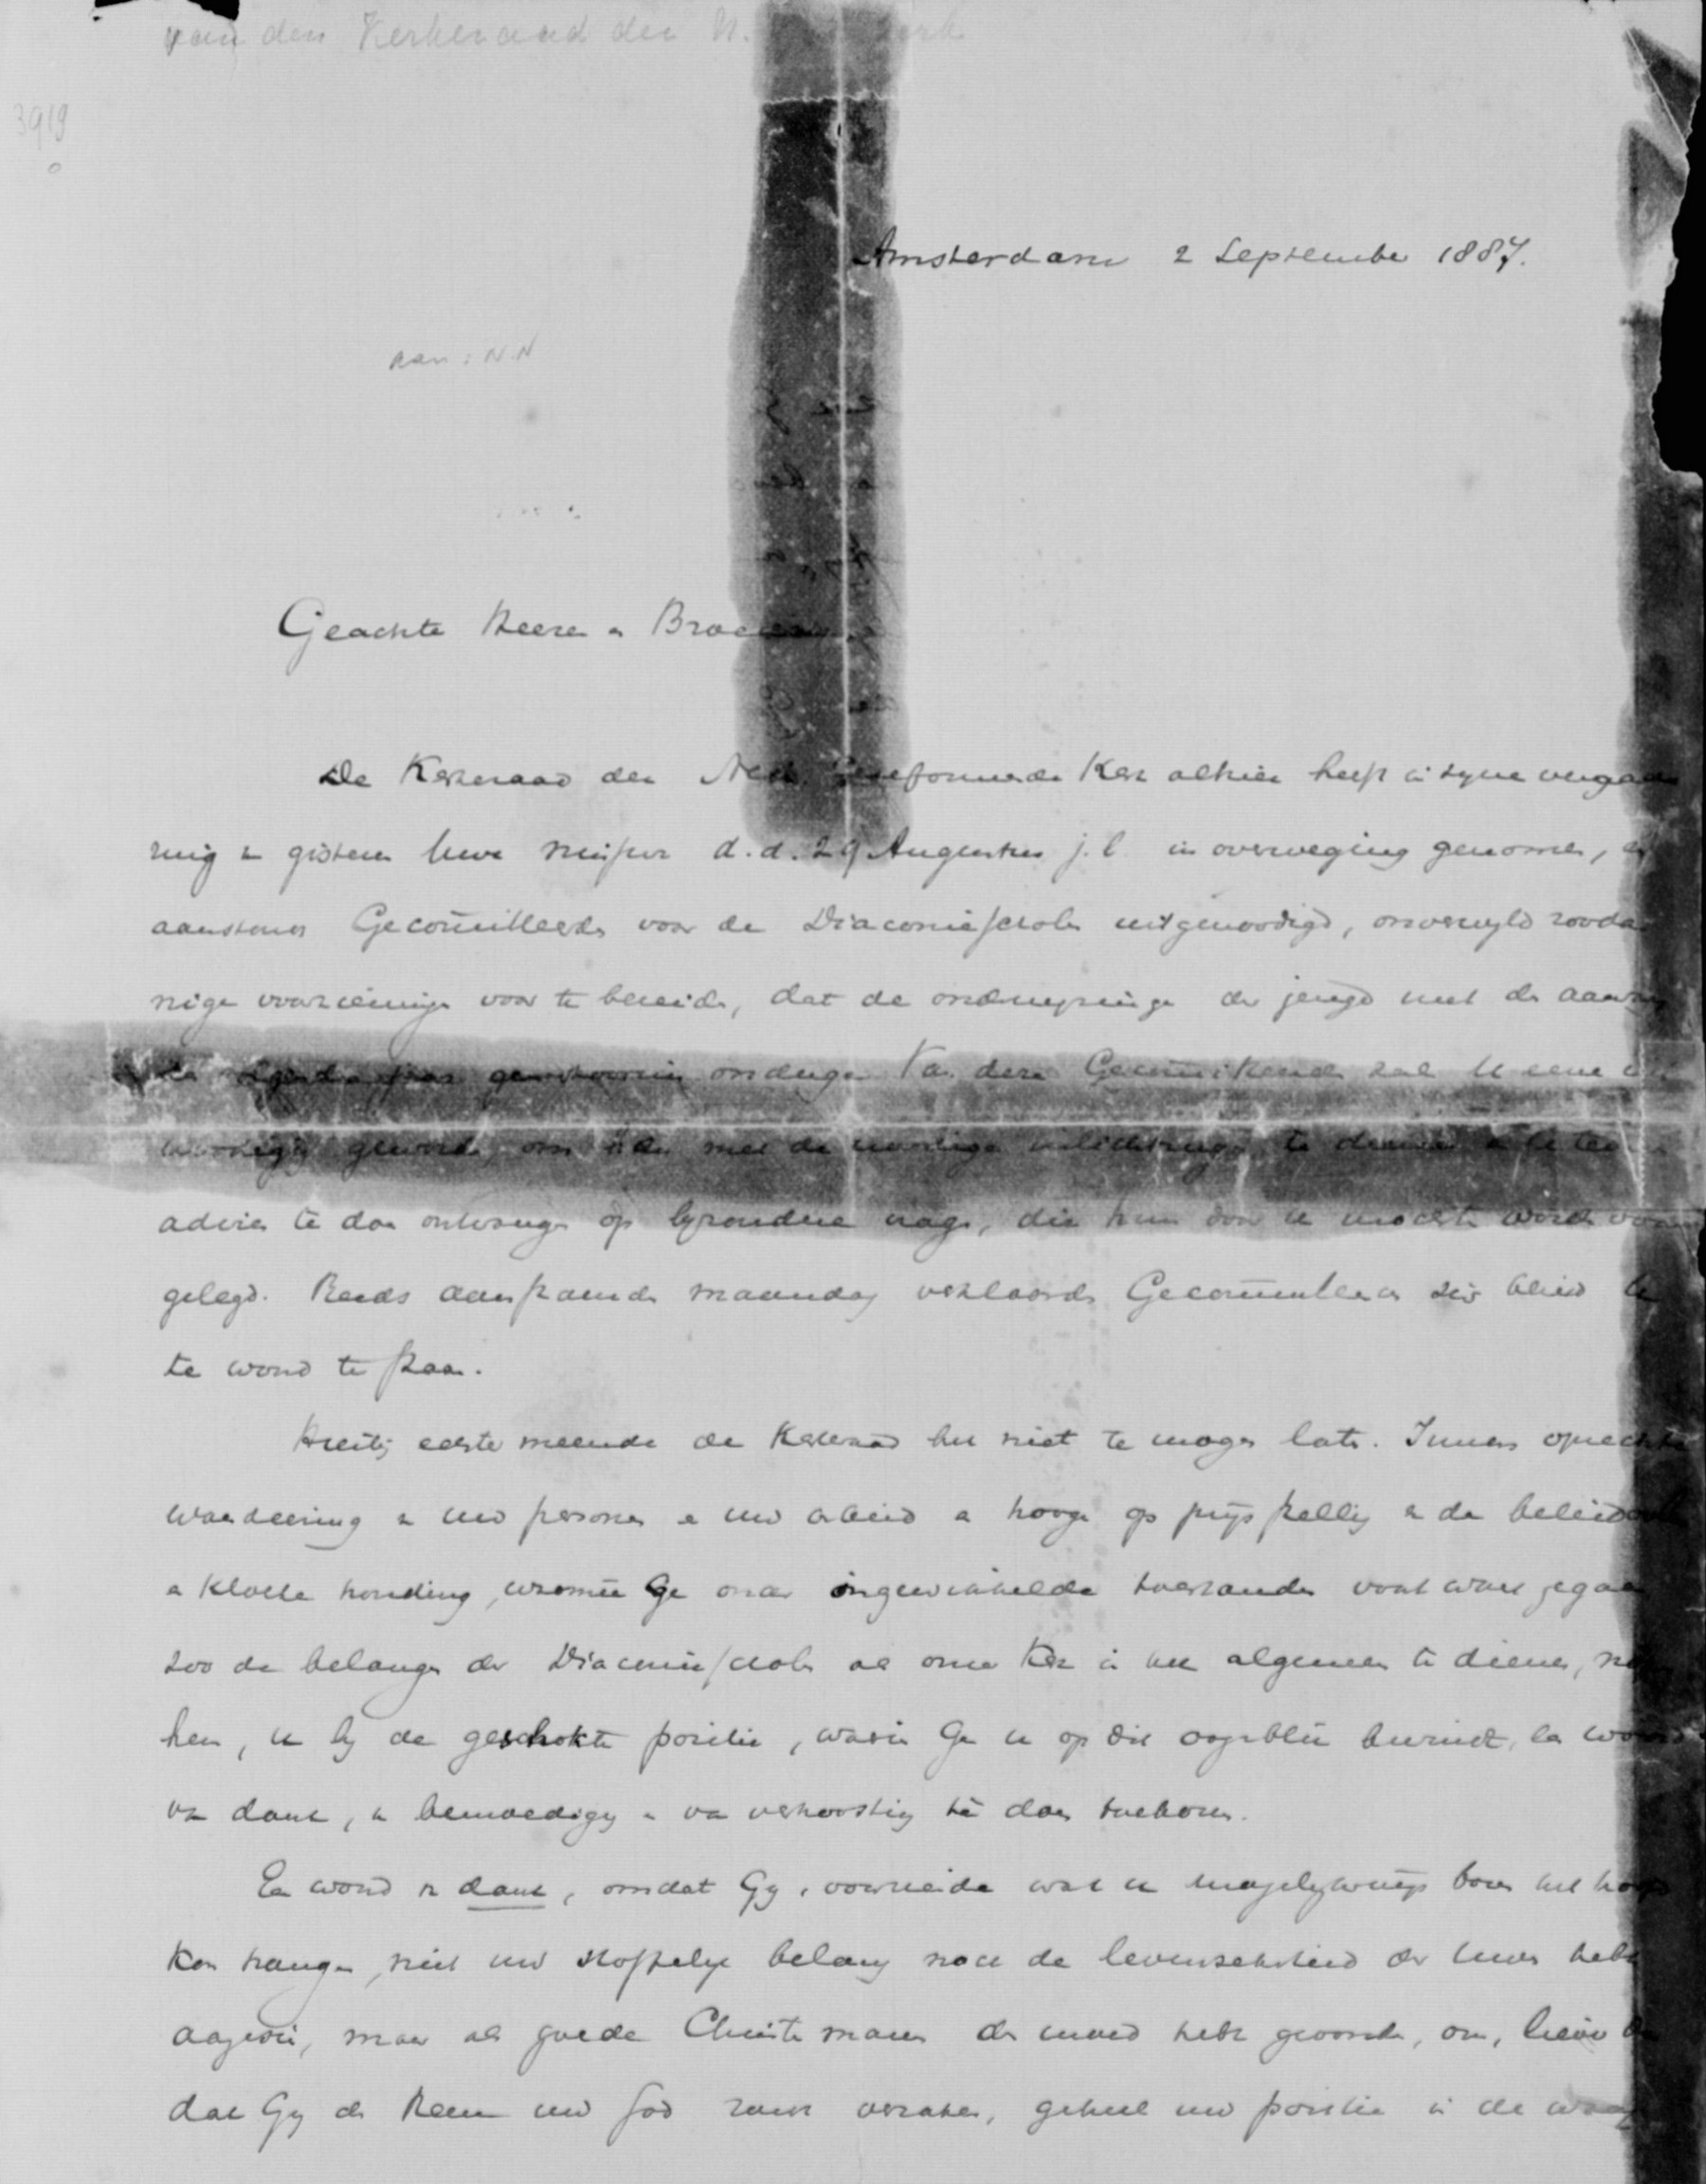 van den Kerkeraad der N. Kerk
3919
Amsterdam 2 September 1887.
Aan: N.N
Geachte Heeren en Broeders
De Kerkeraad der Ned. Gereformeerde Kerk alhier heeft in zyne vergade
ring van gisteren Uwe missive d.d. 29 Augustus j.l. in overweging genomen, en
aanstonds Gecommitteerden voor de Diaconiescholen uitgenoodigd, onverwyld zooda
nige voorzieningen voor te bereiden, dat de der jeugd met de
ondergá. Van deze Gecommitteerden zal U eene
geworden, om hen met de noodige inlichtingen te dienen
advies te doen ontvangen op byzondere vragen, die hun door U mochten worden voor
gelegd. Reeds aanstaande maandag verklaarden Gecommitteerden zich bereid U
te woord te staan.
Hierbij echter meende de Kerkeraad het niet te mogen laten. Inners oprechte
waardeering van uw personen en uw arbeid en hooge op prijs stelling van de beleidvolle
en kloeke houding, waarmee Ge onder ingewikkelde toestanden voort waart gegaan
zoo de belangen der Diaconiescholen als onze Kerk in het algemeen te dienen,
hen, U by de geschokte positie, waarin Ge U op dit oogenblik bevindt, een woord
van dank, van bemoediging en van vertroosting te doen toekomen.
Een woord van dank, omdat Gy, voorziende wat U mogelykerwijs boven het hoofd
kon hangen, niet uw stoffelyk belang noch de levenszekerheid der Uwen hebt
aangezien, maar als goede Christenmannen den moed hebt gehad, om, liever dan
dat Gy den Heere uw God zoudt verzaken, geheel uw positie in de waag